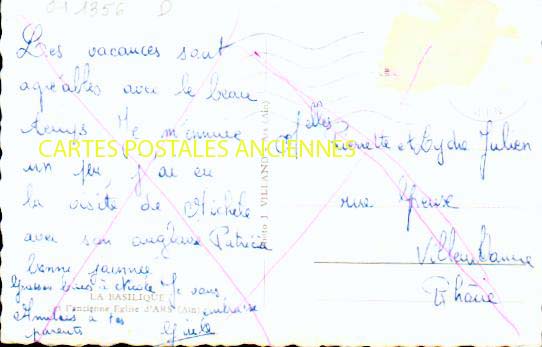 61356 D
Les vacances sont
agréables avec le beau
temps Je m'ennuie
un peu, j'ai eu
la visite de Michèle
avec son anglaise Patricia
bonne journée
Grosses bises à Nicole Je vous
embrasse
Amitiés à tes
parents
Gisèle
Melles Pierrette et Lydie Julien
rue
Villeurbanne
Rhône
CARTES POSTALES ANCIENNES
LA BASILIQUE
l'ancienne Eglise d'ARS (Ain)